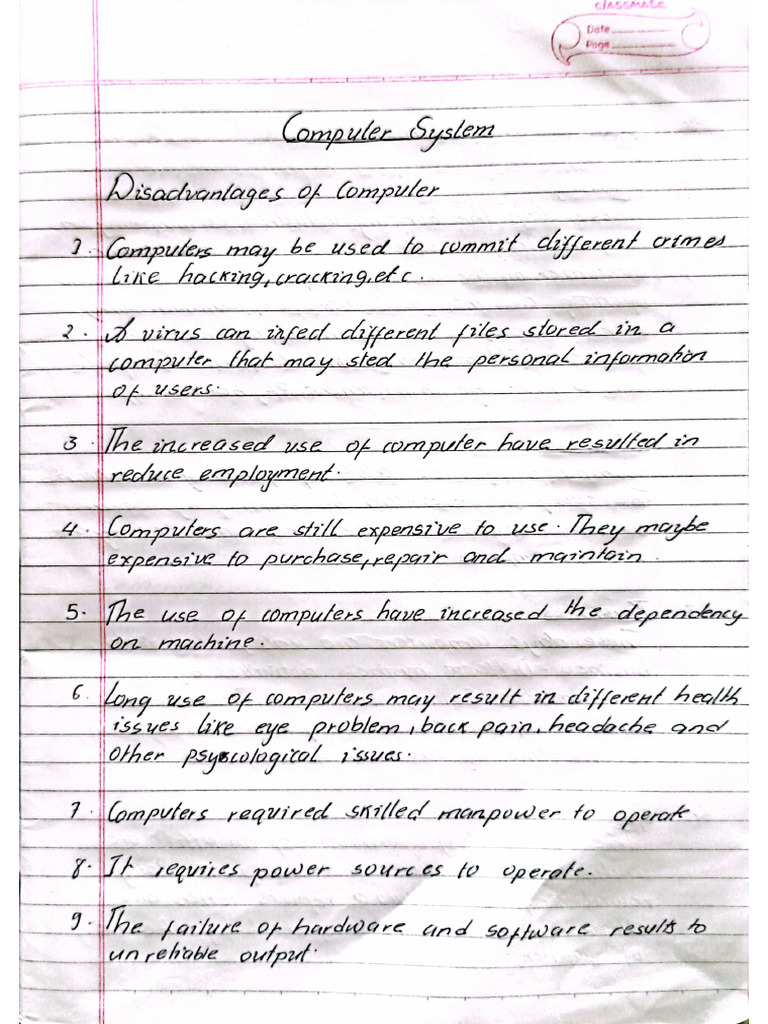 classmate
Date
Page
Computer System
Disadvantages of Computer
1. Computers may be used to commit different crimes
like hacking, cracking, etc.
2. A virus can infed different files stored in a
computer that may sted the personal information
of users.
3. The increased use of computer have resulted in
reduce employment.
4. Computers are still expensive to use. They maybe
expensive to purchase, repair and maintain.
5. The use of computers have increased the dependency
on machine.
6. Long use of computers may result in different health
issues like eye problem, back pain, headache and
other psycological issues.
7. Computers required skilled manpower to operate
8. It requires power sources to operate.
9. The failure of hardware and software results to
unreliable output.